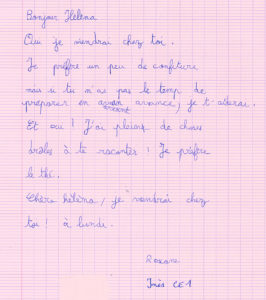 Bonjour Héléna
Oui je viendrai chez toi.
Je préfère un peu de confiture
mais si tu n'as pas le temps de
préparer en avance, je t'aiderai.
Et oui ! J'ai pleins de choses
drôles à te raconter ! Je préfère
le thé.
Chère héléna, je viendrai chez
toi ! à lundi.
Roxane
Inès CE1